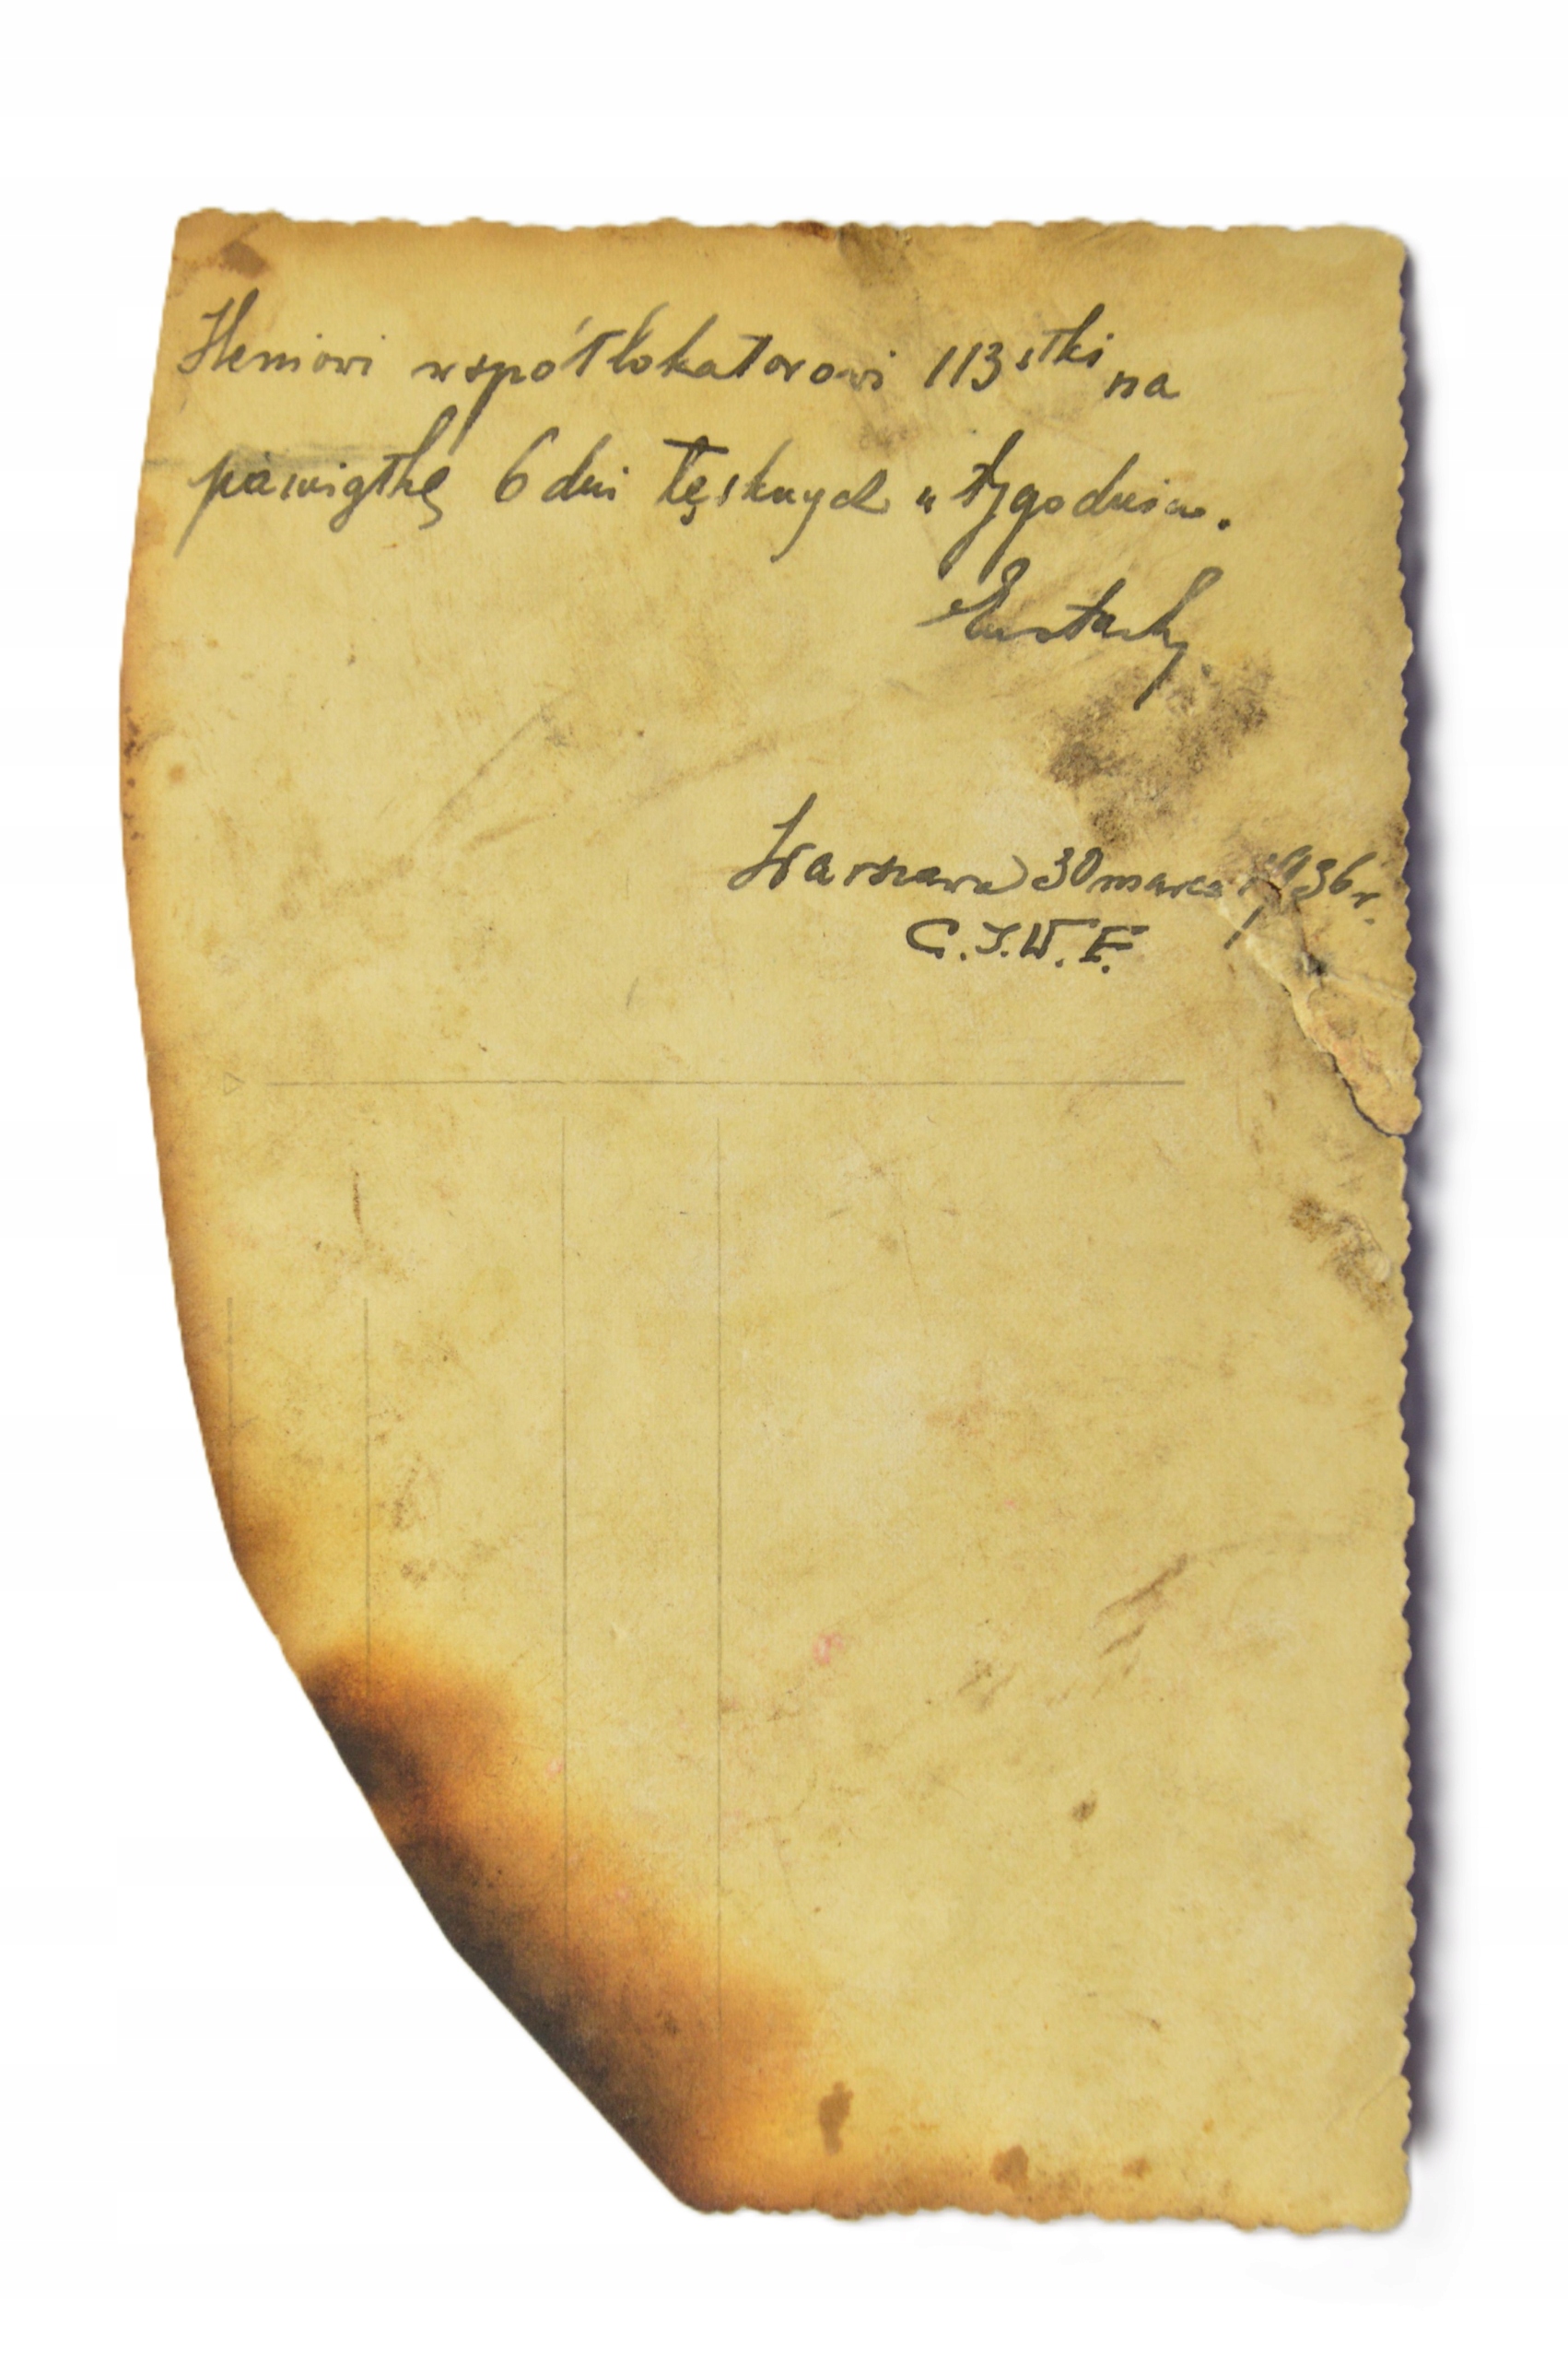 Heniowi współlokatorowi 113stki na
pamiątkę 6 dni tęsknych w tygodniu.
Eustachy
Warszawa 30 marca 1936 r.
C.I.W.F.